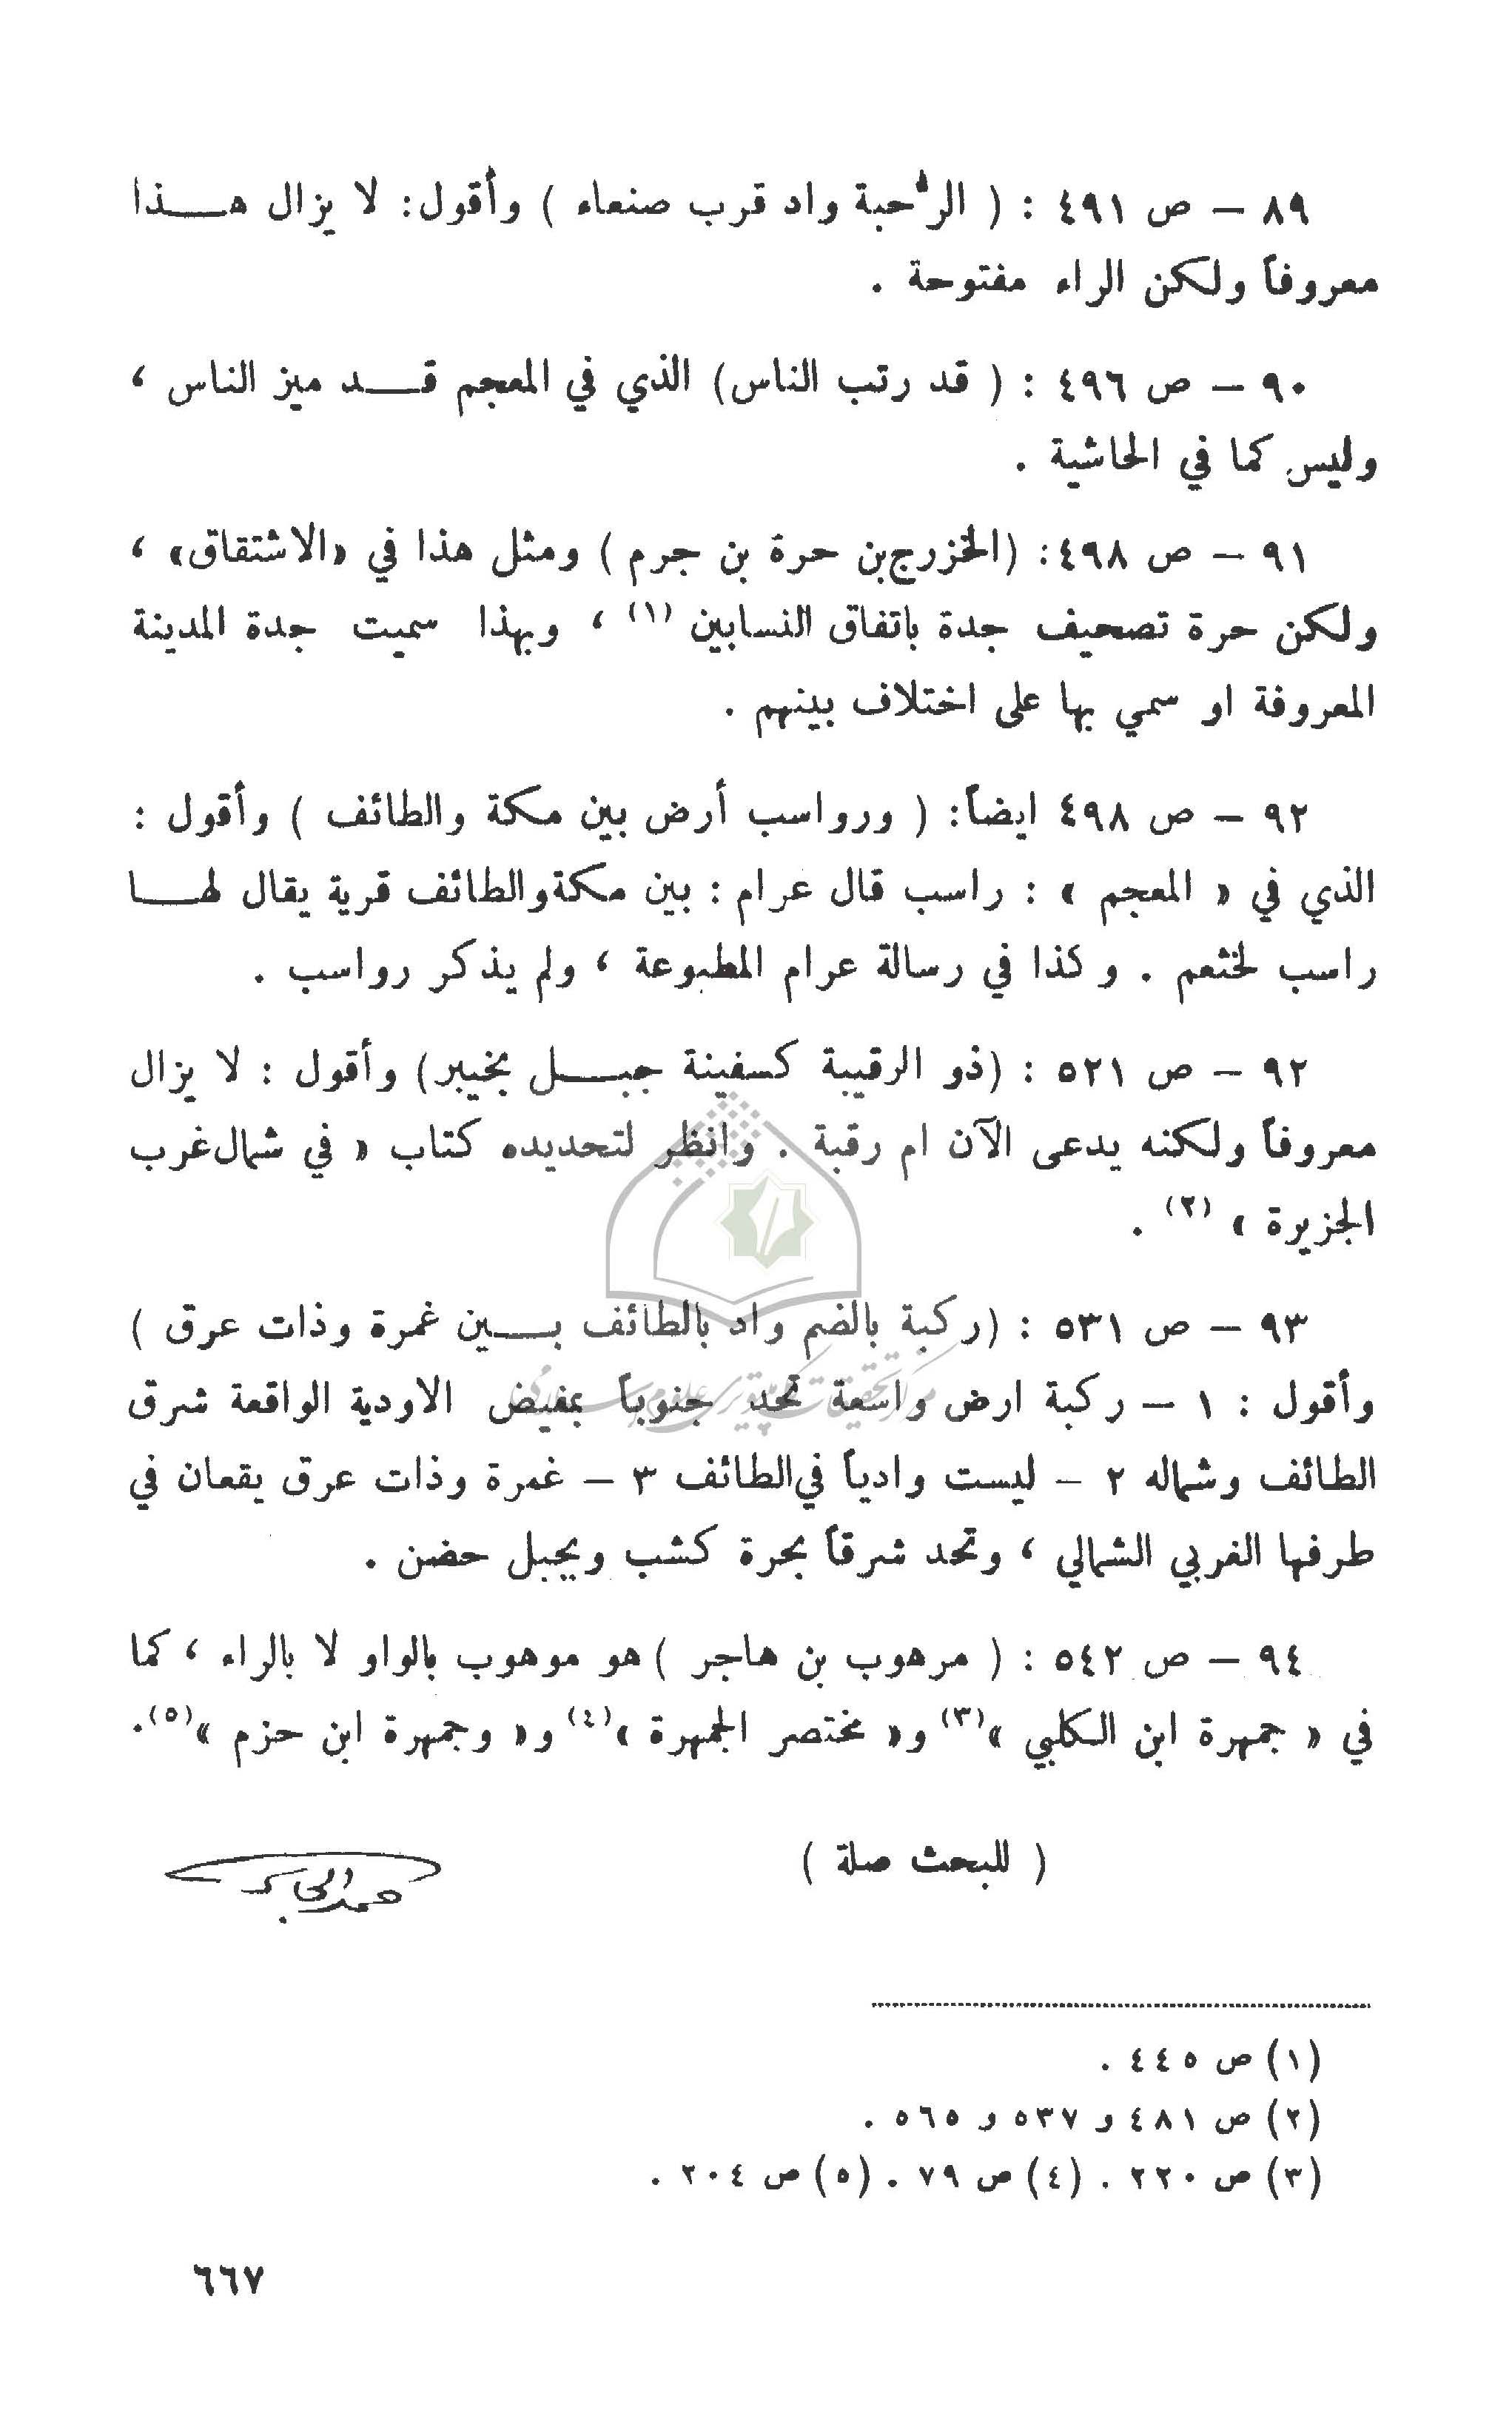 ٨٩ – ص ٤٩١ : ( الرُّحبة واد قرب صنعاء ) وأقول: لا يزال هـــذا
معروفاً ولكن الراء مفتوحة .
٩٠ – ص ٤٩٦ : ( قد رتب الناس) الذي في المعجم قـــد ميز الناس ،
وليس كما في الحاشية .
٩١ – ص ٤٩٨: (الخزرج بن حرة بن جرم ) ومثل هذا في «الاشتقاق» ،
ولكن حرة تصحيف جدة باتفاق النسابين (١) ، وبهذا سميت جدة المدينة
المعروفة او سمي بها على اختلاف بينهم .
٩٢ – ص ٤٩٨ ايضاً: ( ورواسب أرض بين مكة والطائف ) وأقول :
الذي في « المعجم » : راسب قال عرام : بين مكة والطائف قرية يقال لهـــا
راسب لخثعم . وكذا في رسالة عرام المطبوعة ، ولم يذكر رواسب .
٩٢ – ص ٥٢١ : (ذو الرقيبة كسفينة جبـــل بخيبر) وأقول : لا يزال
معروفاً ولكنه يدعى الآن ام رقبة . وانظر لتحديده كتاب « في شمال غرب
الجزيرة » (٢) .
٩٣ – ص ٥٣١ : (ركبة بالضم واد بالطائف بـــين غمرة وذات عرق )
وأقول : ١ – ركبة ارض واسعة تحد جنوباً بمفيض الاودية الواقعة شرق
الطائف وشماله ٢ – ليست وادياً في الطائف ٣ – غمرة وذات عرق يقعان في
طرفها الغربي الشمالي ، وتحد شرقاً بحرة كشب وبجبل حضن .
٩٤ – ص ٥٤٢ : ( مرهوب بن هاجر ) هو موهوب بالواو لا بالراء ، كما
في « جمهرة ابن الكلبي »(٣) و« مختصر الجمهرة »(٤) و« وجمهرة ابن حزم »(٥).
( للبحث صلة )
حمد الجاسر
(١) ص ٤٤٥ .
(٢) ص ٤٨١ و ٥٣٧ و ٥٦٥ .
(٣) ص ٢٢٠ . (٤) ص ٧٩ . (٥) ص ٢٠٤ .
٦٦٧